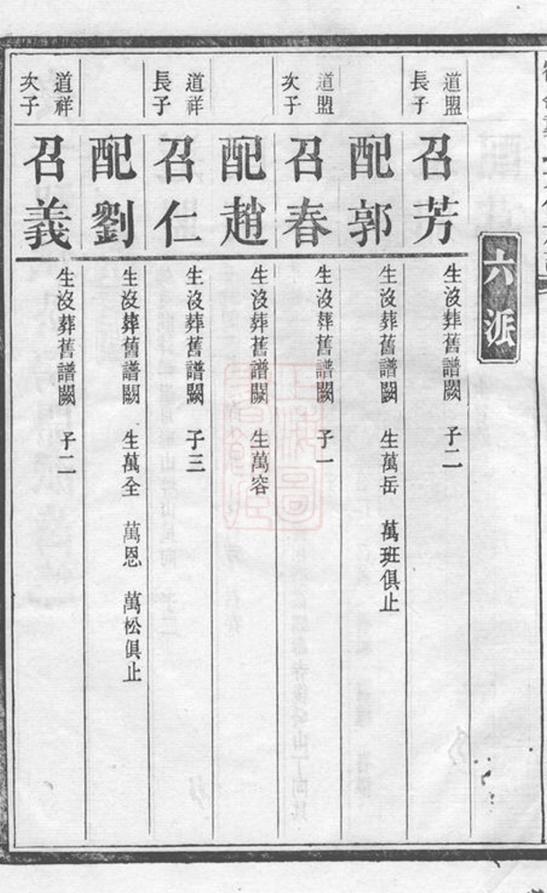 六派
道盟
長子
召芳
生沒葬舊譜闕 子二
配郭
生沒葬舊譜闕 生萬岳 萬班俱止
道盟
次子
召春
生沒葬舊譜闕 子一
配趙
生沒葬舊譜闕 生萬容
道祥
長子
召仁
生沒葬舊譜闕 子三
配劉
生沒葬舊譜闕 生萬全 萬恩 萬松俱止
道祥
次子
召義
生沒葬舊譜闕 子二